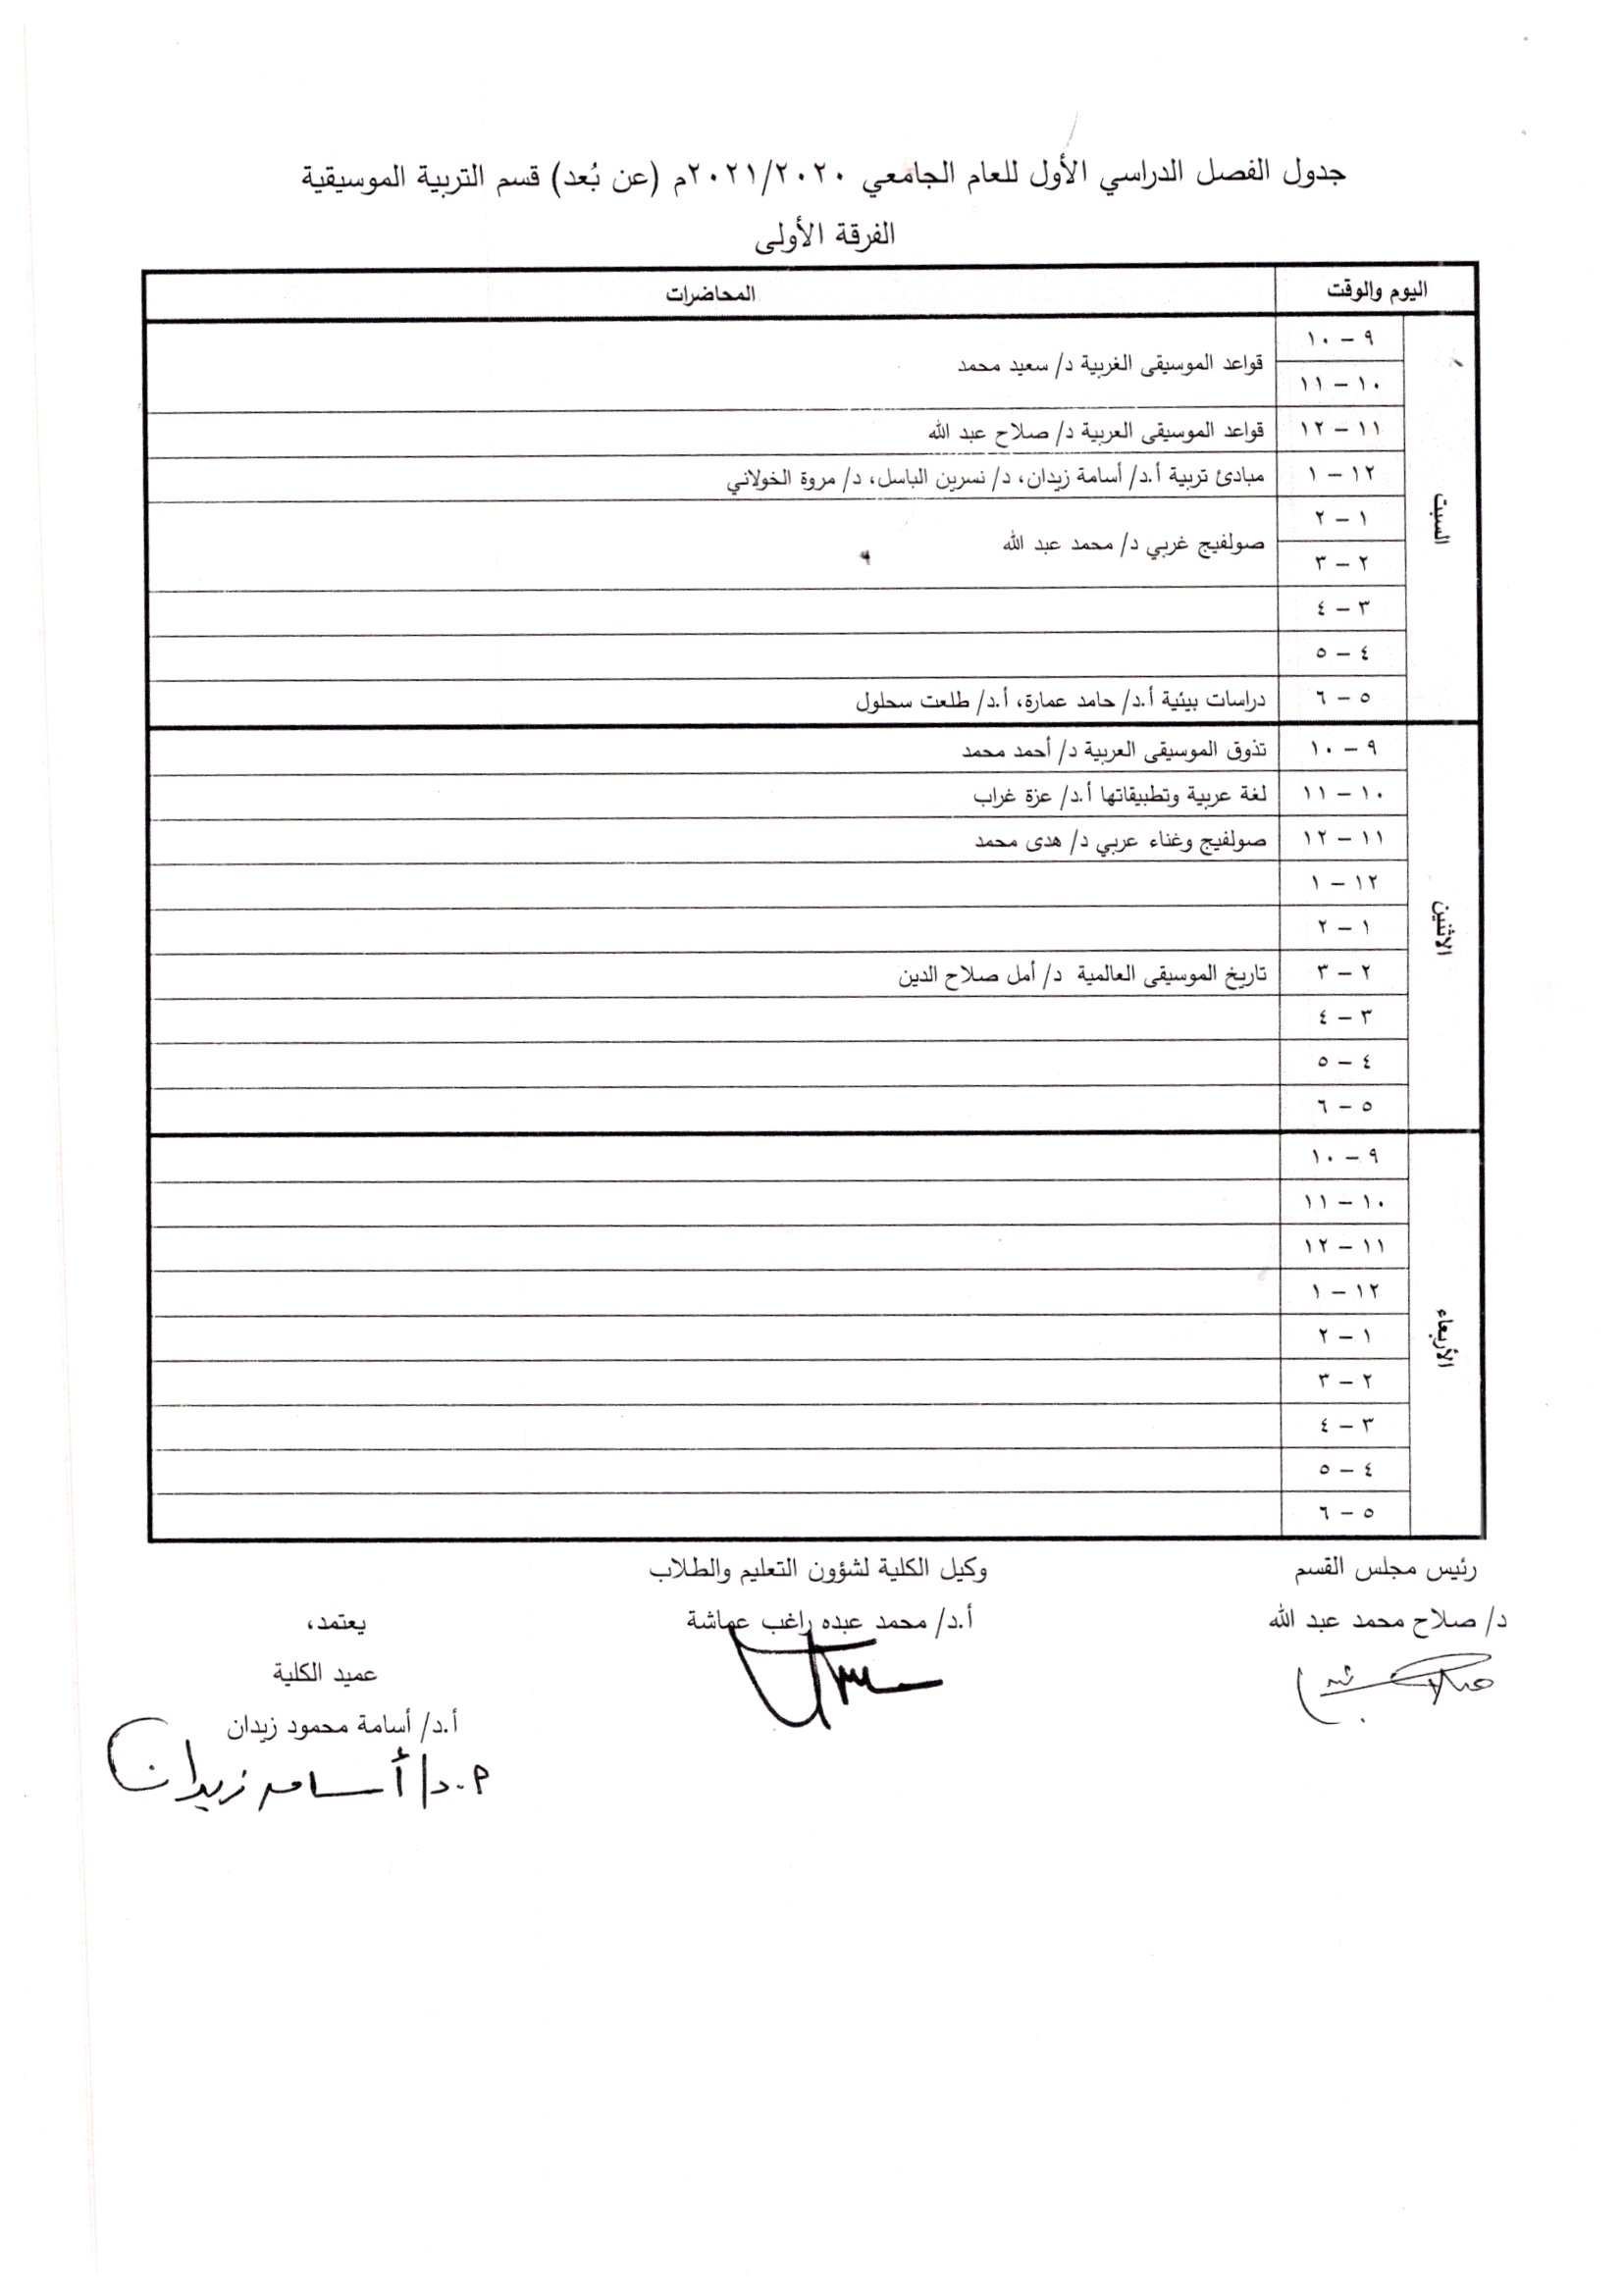 جدول الفصل الدراسي الأول للعام الجامعي ٢٠٢١/٢٠٢٠م (عن بُعد) قسم التربية الموسيقية
الفرقة الأولى
اليوم والوقت المحاضرات
السبت
٩ – ١٠ قواعد الموسيقى الغربية د/ سعيد محمد
١٠ – ١١
١١ – ١٢ قواعد الموسيقى العربية د/ صلاح عبد الله
١٢ – ١ مبادئ تربية أ.د/ أسامة زيدان، د/ نسرين الباسل، د/ مروة الخولاني
١ – ٢ صولفيج غربي د/ محمد عبد الله
٢ – ٣
٣ – ٤
٤ – ٥
٥ – ٦ دراسات بيئية أ.د/ حامد عمارة، أ.د/ طلعت سحلول
الاثنين
٩ – ١٠ تذوق الموسيقى العربية د/ أحمد محمد
١٠ – ١١ لغة عربية وتطبيقاتها أ.د/ عزة غراب
١١ – ١٢ صولفيج وغناء عربي د/ هدى محمد
١٢ – ١
١ – ٢
٢ – ٣ تاريخ الموسيقى العالمية د/ أمل صلاح الدين
٣ – ٤
٤ – ٥
٥ – ٦
الأربعاء
٩ – ١٠
١٠ – ١١
١١ – ١٢
١٢ – ١
١ – ٢
٢ – ٣
٣ – ٤
٤ – ٥
٥ – ٦
رئيس مجلس القسم
د/ صلاح محمد عبد الله
وكيل الكلية لشؤون التعليم والطلاب
أ.د/ محمد عبده راغب عماشة
يعتمد،
عميد الكلية
أ.د/ أسامة محمود زيدان
م.د/ أسامه زيدان